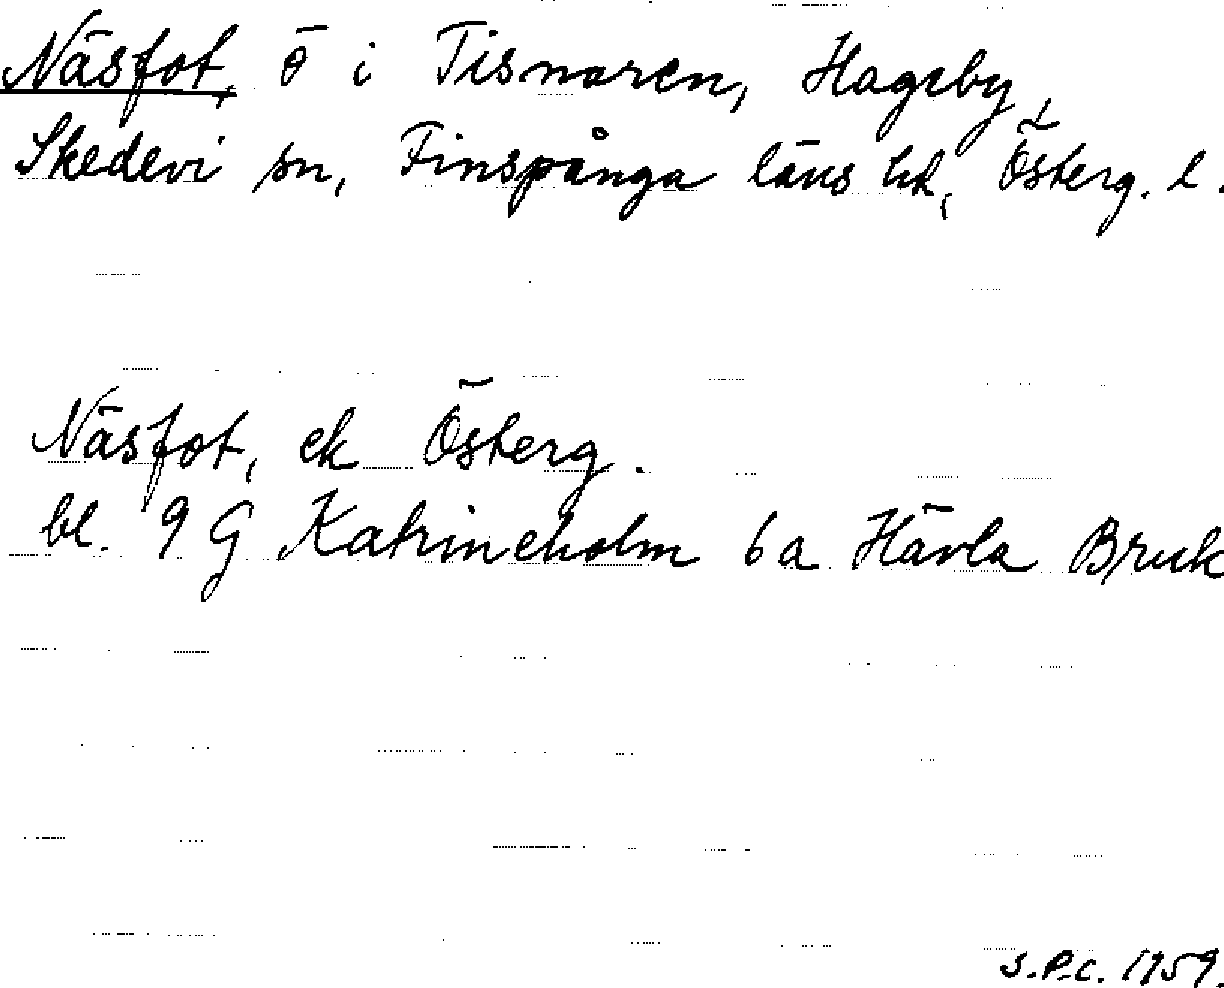 Näsfot, ö i Tisnaren, Hageby,
Skedevi sn, Finspånga läns hd, Österg. l.
Näsfot, ek Österg.
bl. 9 G Katrineholm 6a Hävla Bruk
S.P.C. 1959.